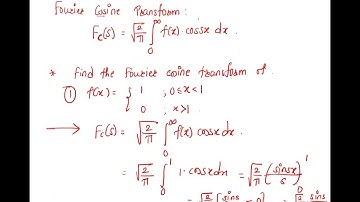 Fourier Cosine Transform:
Fc(s) = √(2/π) ∫₀^∞ f(x)·cossx dx.
* Find the Fourier coine transform of.
① f(x) = { 1 ; 0≤x<1
0 ; x>1
→ Fc(s) = √(2/π) ∫₀^∞ f(x) cosxdx.
= √(2/π) ∫₀^1 1·cosxdx = √(2/π) (sinsx/s)₀^1
= √(2/π) [sins